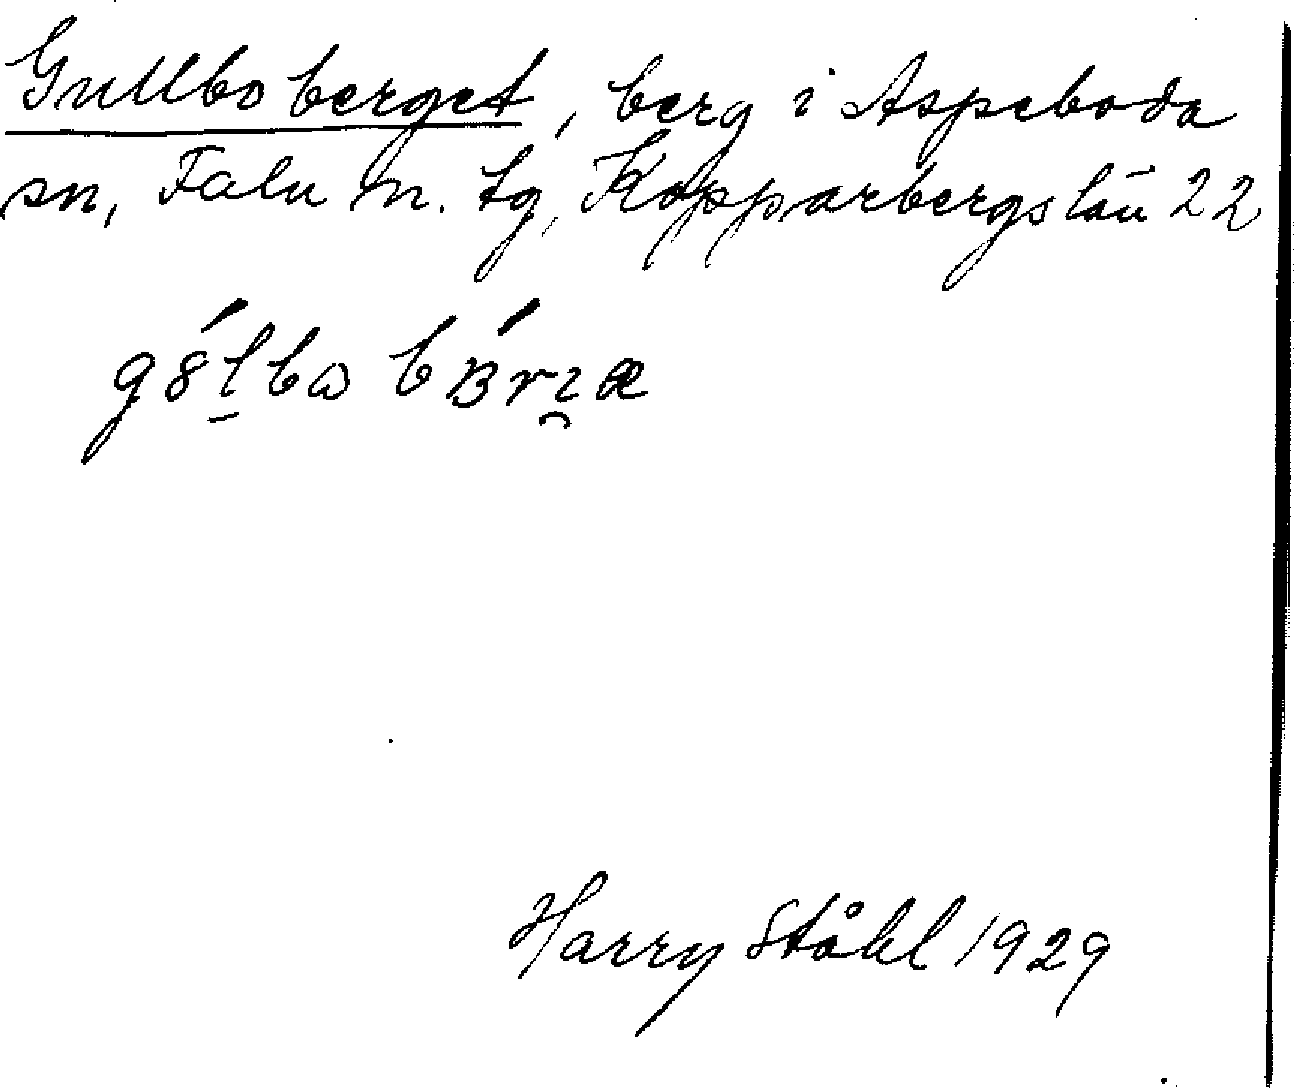 Gullboberget, berg i Aspeboda
sn, Falu n. tg, Kopparbergs län 22
Harry Ståhl 1929